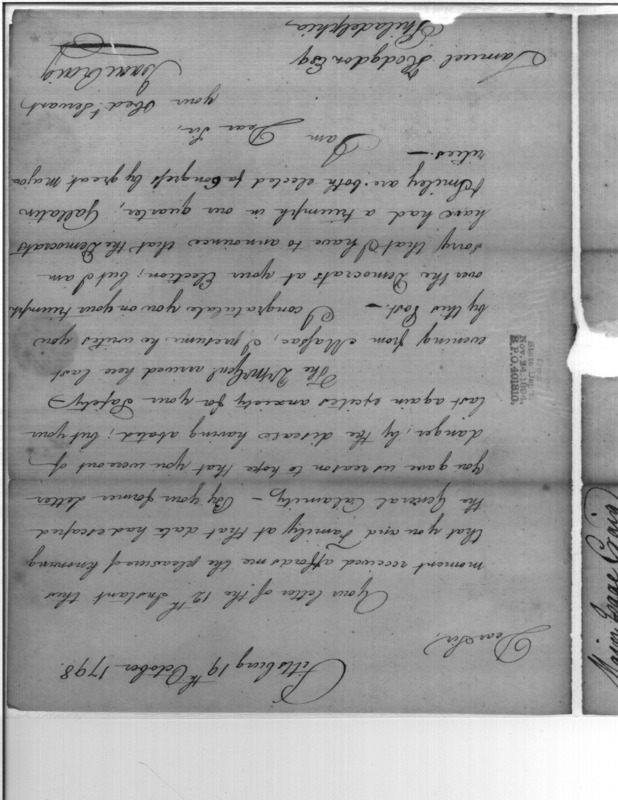 Pittsburg 19th October 1798.
Dear Sir,
Your letter of the 12th Instant this
moment received affords me the pleasure of knowing
that you and Family at that date had escaped
the General Calamity — By your former Letter
you gave us reason to hope that you were out of
danger, by the disease having abated; but your
last again excites anxiety for your Safety
The Qr MrGenl arrived here last
evening from Massac, I presume he writes you
by this Post. — I congratulate you on your triumph
over the Democrats at your Election; but I am
sorry that I have to announce that the Democrats
have had a triumph in our quarter, Gallatin
& Smiley are both elected to Congress by great majo-
rities. —
I am
Dear Sir,
your Obed Servant
Isaac Craig
Samuel Hodgdon Esqr
Philadelphia
Nov. 24, 1804,
R.P.O. 401810.
Major Isaac Craig